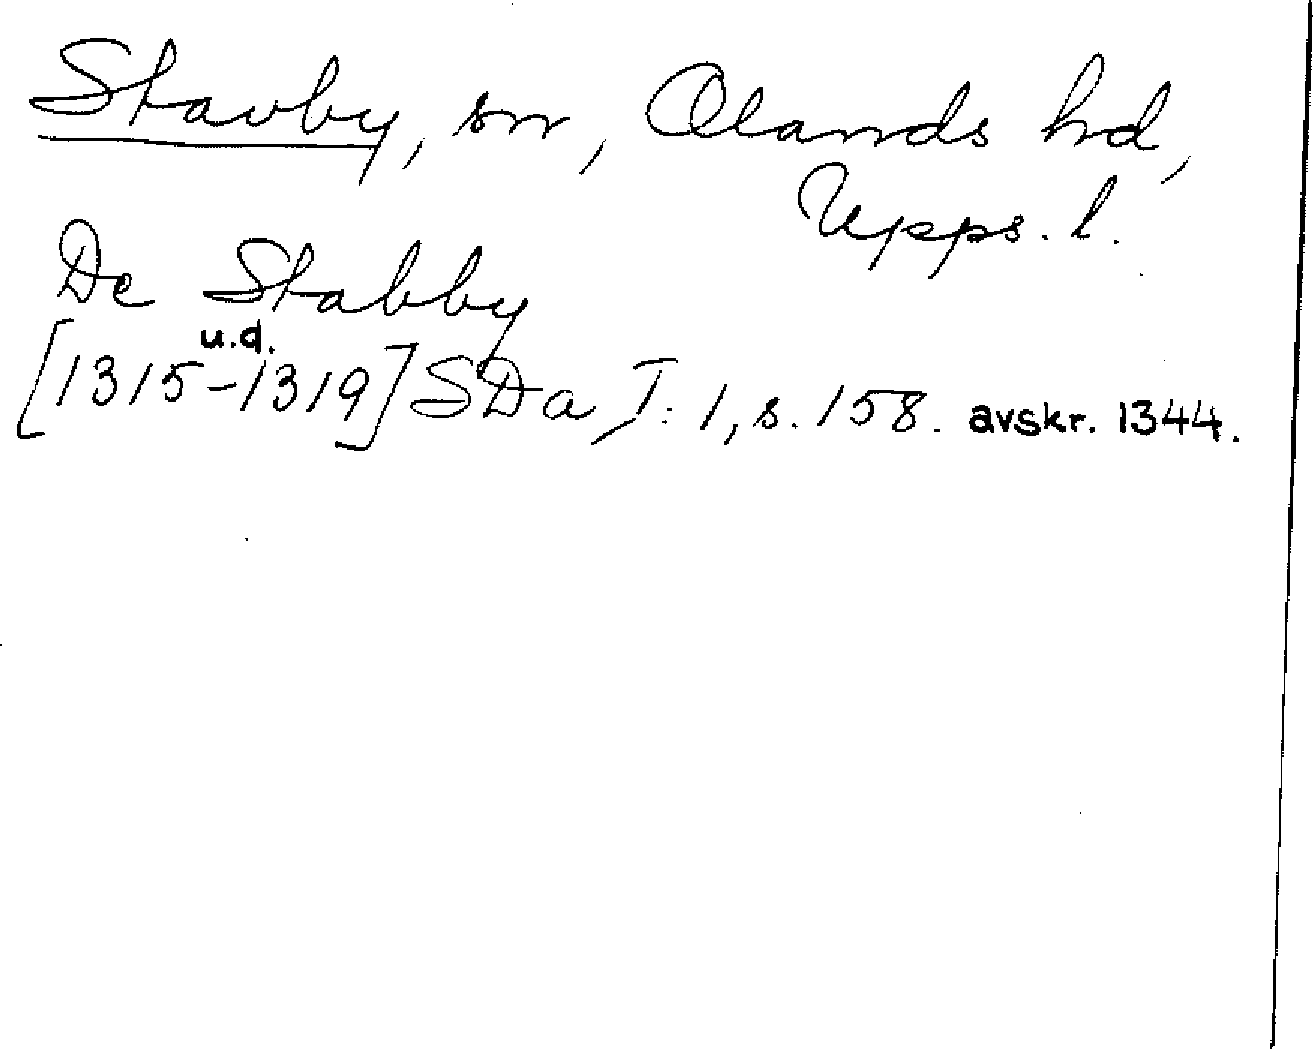 Stavby, sn, Olands hd,
Upps. l.
De Stabby
u.d.
[1315-1319] SDa, I: 1, s. 158. avskr. 1344.